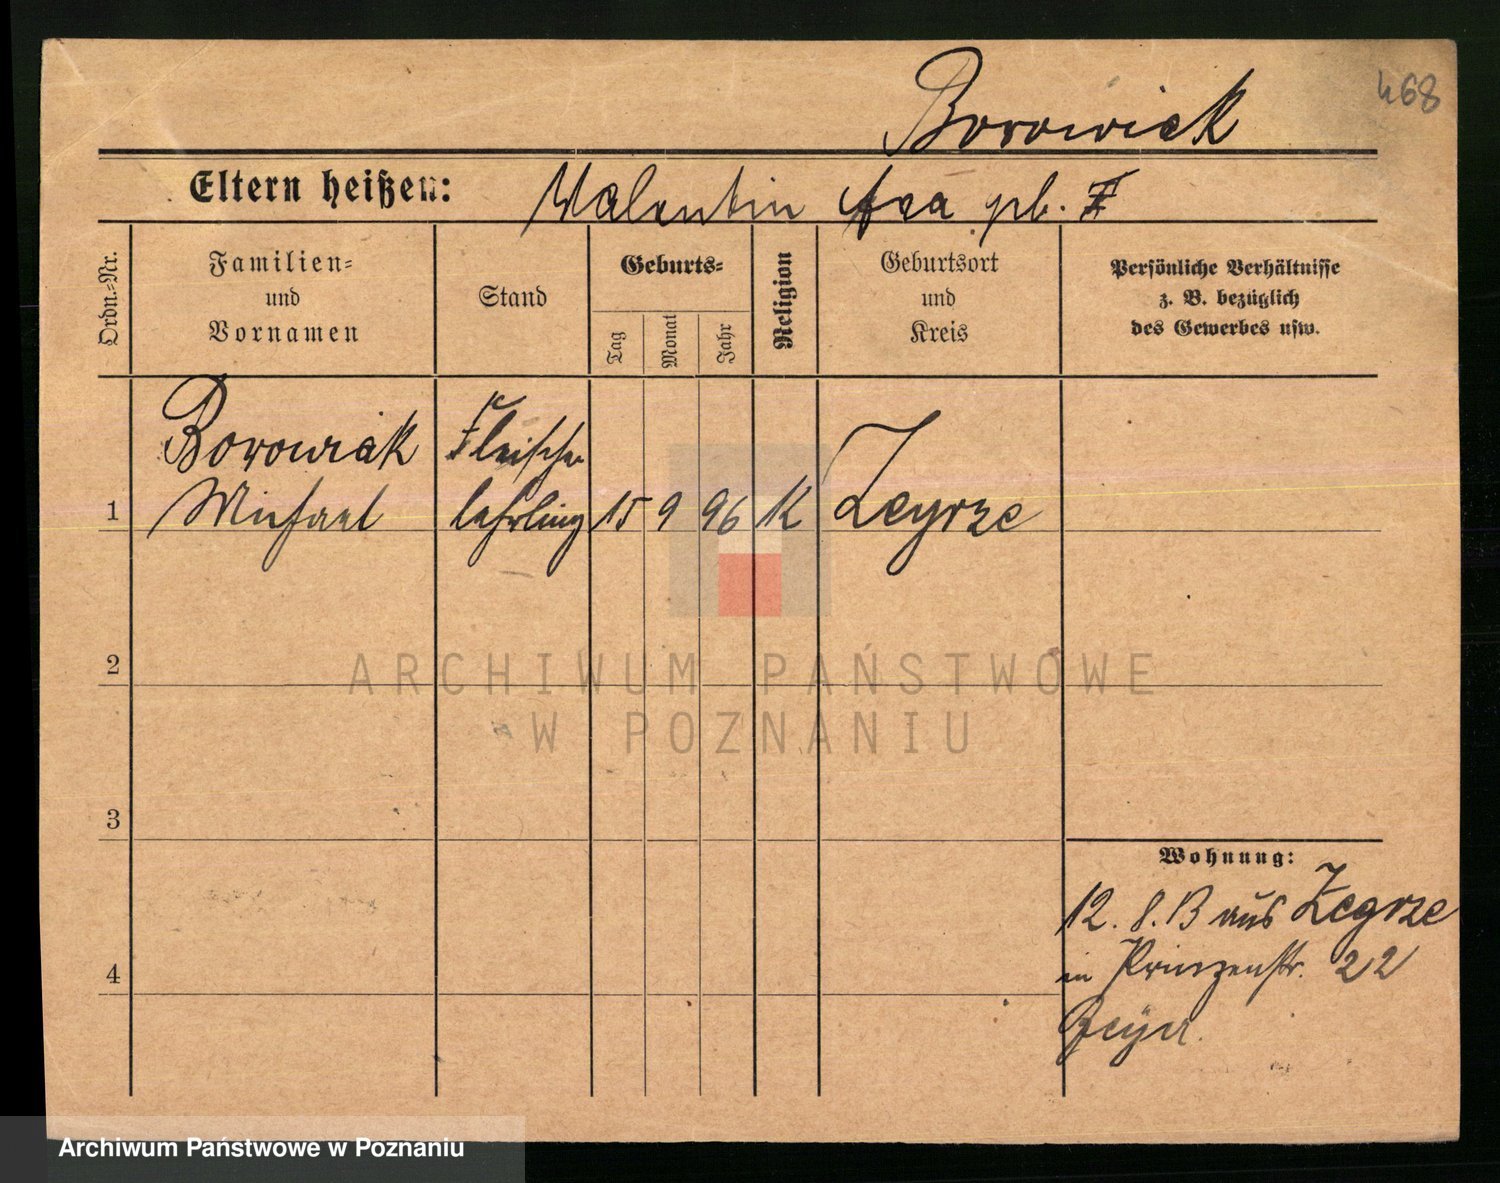 468
Borowiak
Eltern heißen: Valentin geb.
Ordn.-Nr.
Familien-
und
Vornamen
Stand
Geburts-
Tag
Monat
Jahr
Religion
Geburtsort
und
Kreis
Persönliche Verhältnisse
z. B. bezüglich
des Gewerbes usw.
Borowiak Fleischer
1 Michael lehrling 15 9 96 K Zegrze
2
3
4
Wohnung:
12. 8. 13 aus Zegrze
in Prinzenstr. 22
ARCHIWUM PAŃSTWOWE
W POZNANIU
Archiwum Państwowe w Poznaniu